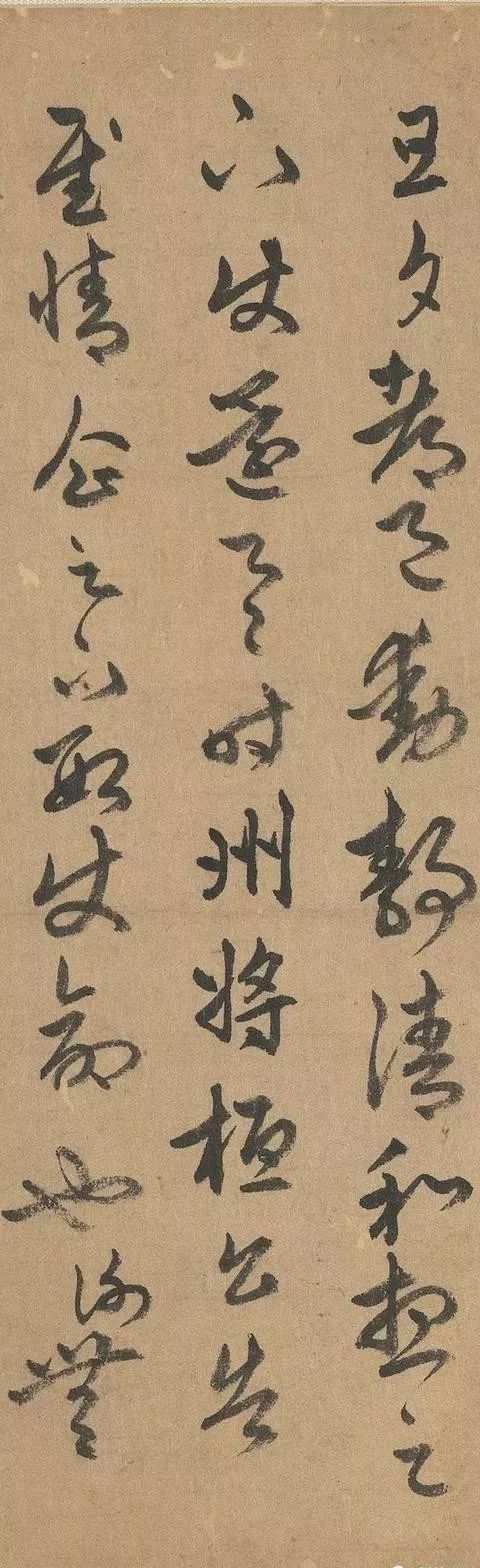 旦夕都邑動靜清和想足
下使還具時州將桓公告
慰情企足下數使命也謝無